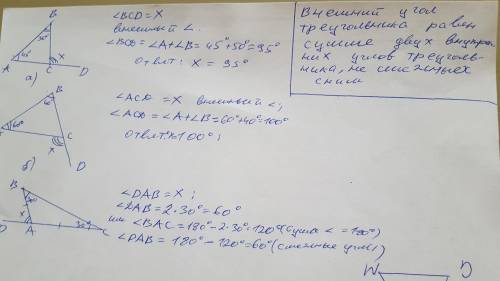 ∠BCD = X
внешний ∠.
∠BCD = ∠A+∠B = 45°+50° = 95°
Ответ: X = 95°
Внешний угол
треугольника равен
сумме двух внутрен-
них углов треуголь-
ника, не смежных
с ним
B
A
C
D
X
а)
∠ACD = X внешний ∠;
∠ACD = ∠A+∠B = 60°+40° = 100°
Ответ: X 100°;
B
60°
C
X
D
б)
∠DAB = X;
∠DAB = 2·30° = 60°
или ∠BAC = 180° - 2·30° = 120° (сумма < = 180°)
∠DAB = 180° - 120° = 60° (смежные углы)
B
X
A
30°
C
W
D